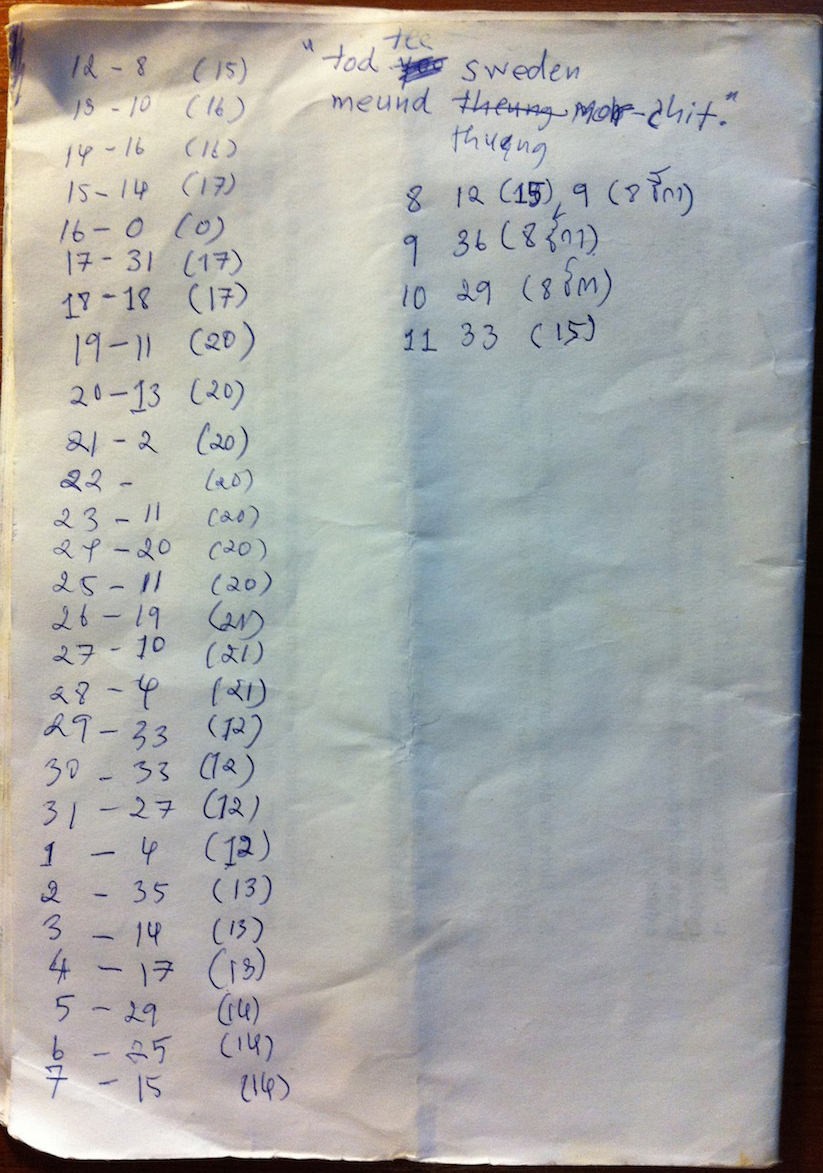 12 - 8 (15)
13 - 10 (16)
14 - 16 (16)
15 - 14 (17)
16 - 0 (0)
17 - 31 (17)
18 - 18 (17)
19 - 11 (20)
20 - 13 (20)
21 - 2 (20)
22 - (20)
23 - 11 (20)
24 - 20 (20)
25 - 11 (20)
26 - 19 (21)
27 - 10 (21)
28 - 4 (21)
29 - 33 (12)
30 - 33 (12)
31 - 27 (12)
1 - 4 (12)
2 - 35 (13)
3 - 14 (13)
4 - 17 (13)
5 - 29 (14)
6 - 25 (14)
7 - 15 (14)
"tod tee sweden
meund theung mor-chit."
thueng
8 12 (15), 9 (8
9 36 (8
10 29 (8
11 33 (15)